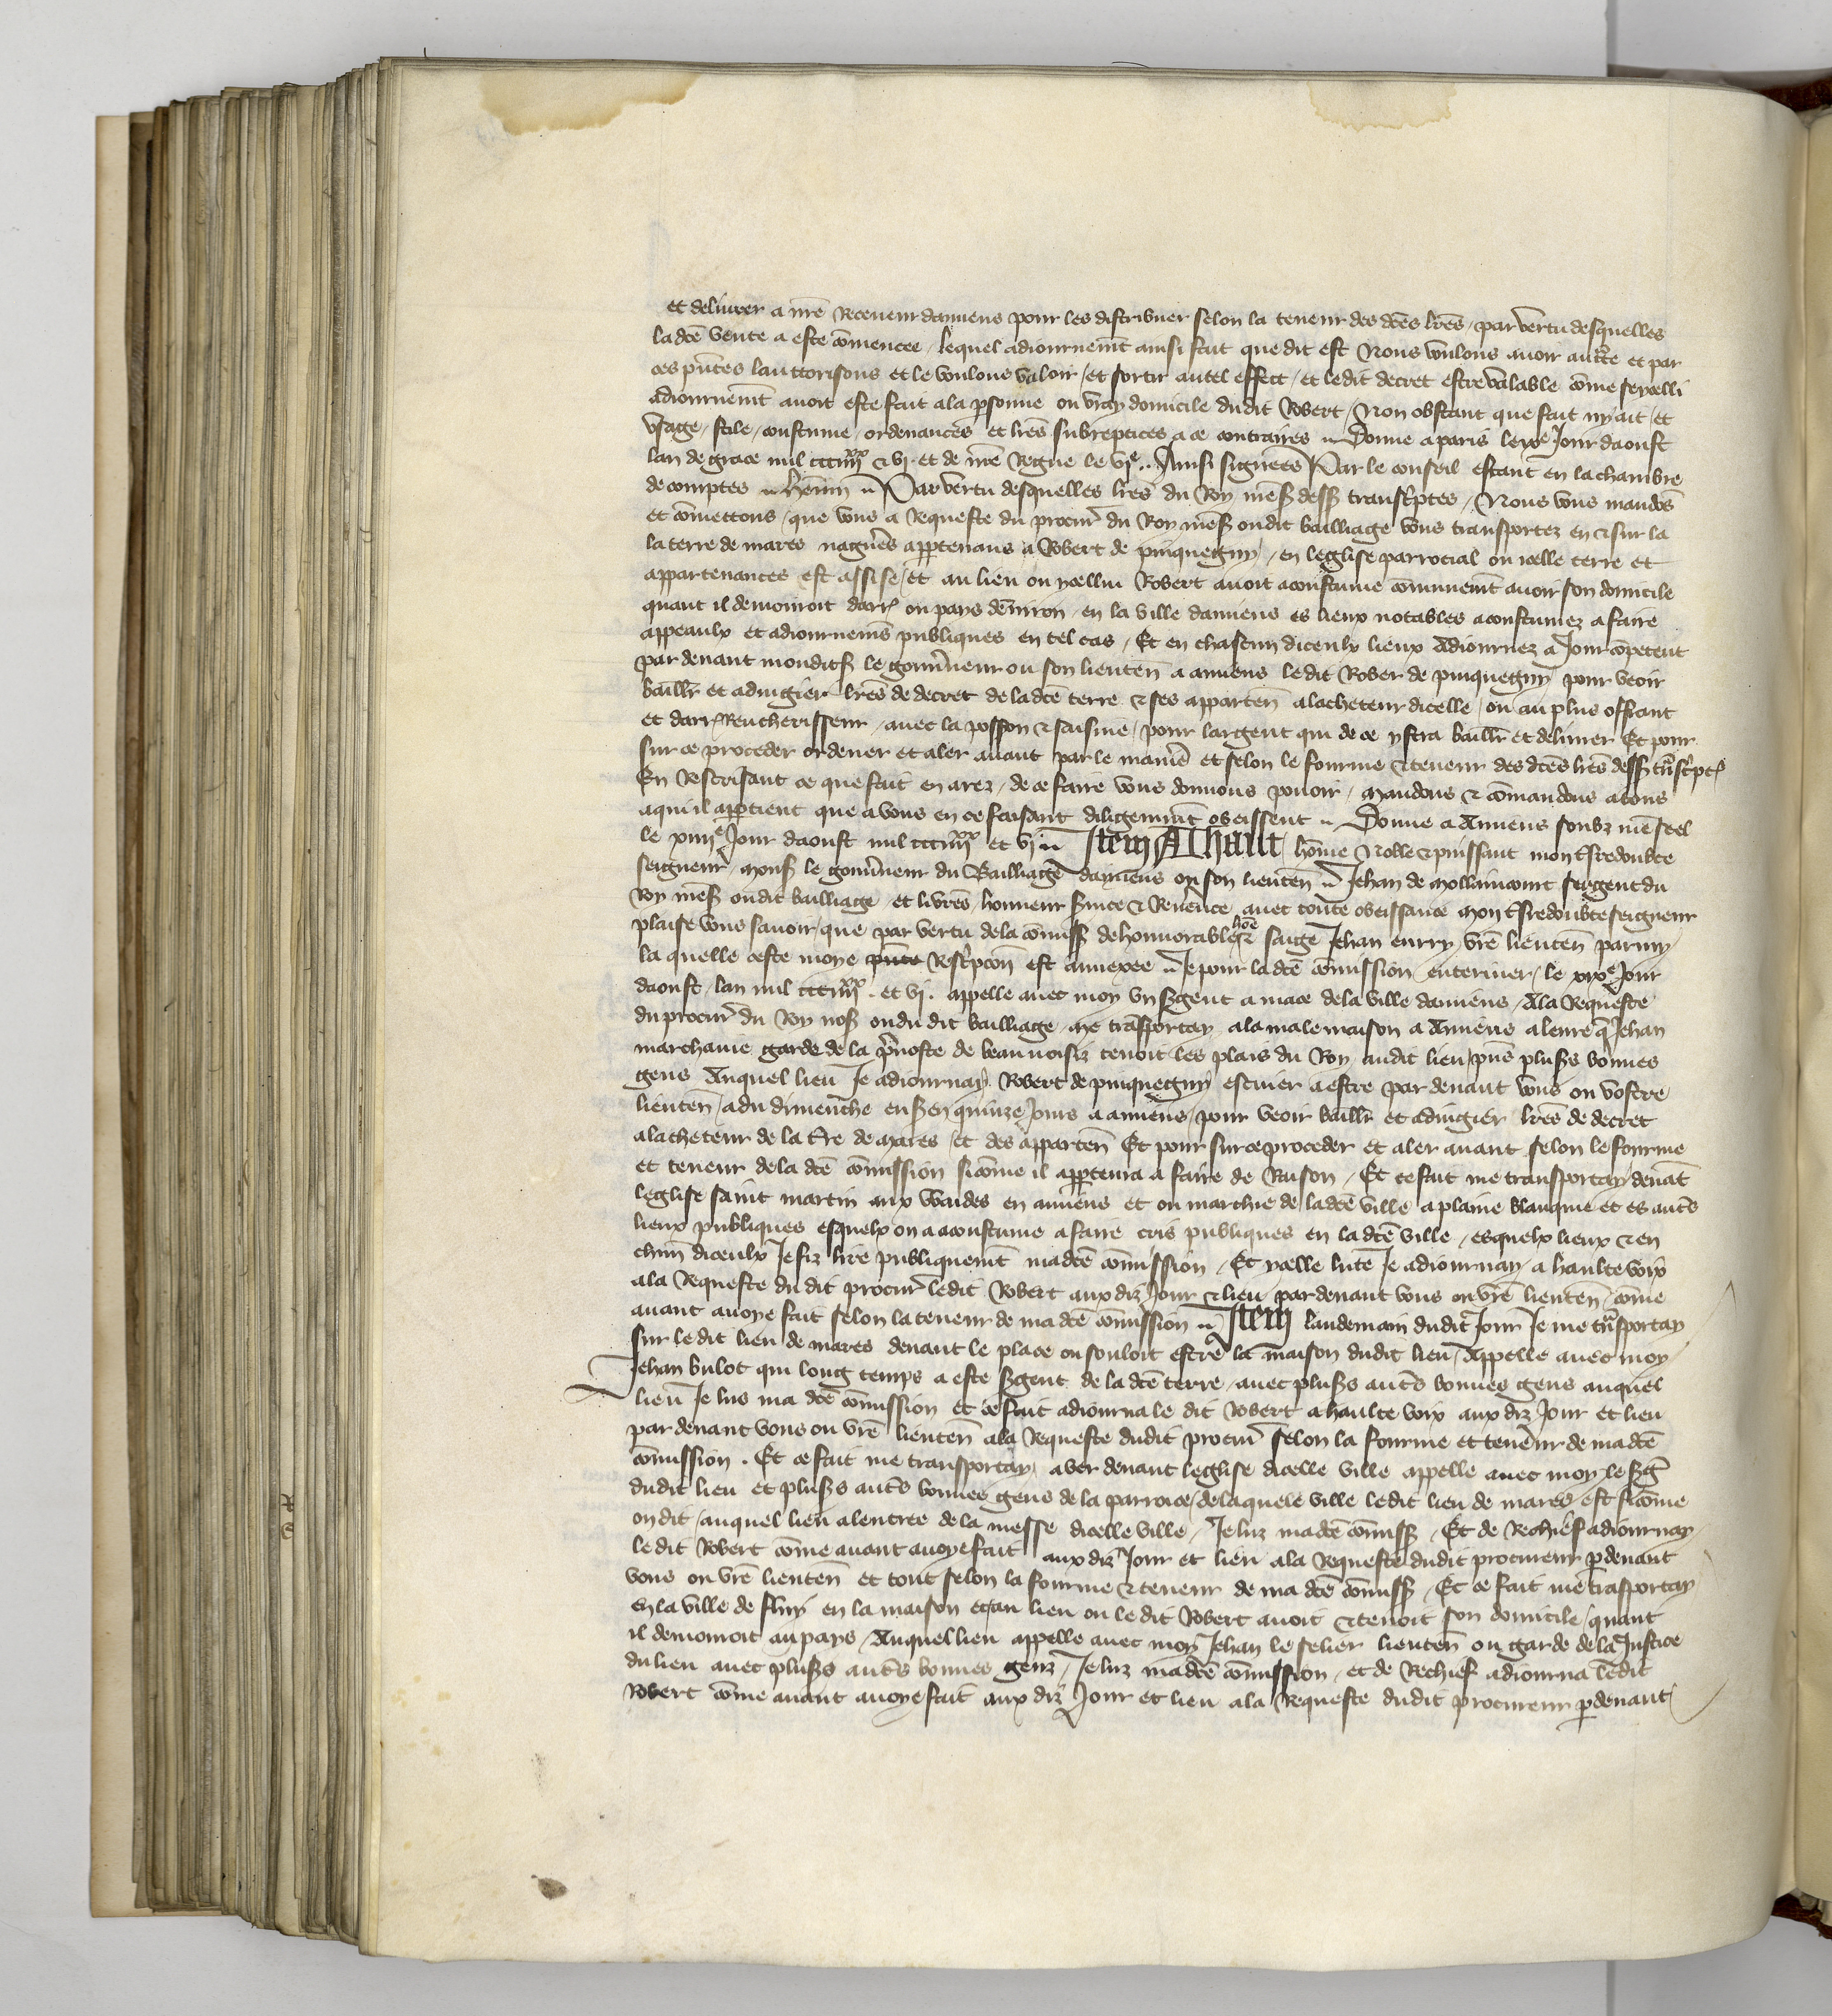 et delivrer a nr̃e Receveur damiens pour les distribuer selon la teneur des dc̃es lr̃es / par vertu desquelles
la dc̃e vente a este com̃encee / lequel adiournem̃t ainsi fait que dit est Nous voulons avoir auct̃e et par
ces pñtes lauctorisons et le voulons valoir / et sortir autel effect / et ledit decret estre valable com̃e se ycelli
adiournem̃t avoit este fait a la p̱sonne ou vray domicile dudit Robert / Non obstant que fait ny ait / et
usage / stile / coustume / ordenances et lr̃es subreptices a ce contraires .. Donne a paris le xe Jour daoust
lan de grace mil ccciiijxx & vj. et de nr̃e Regne le vje .. Ainsi signees Par le conseil estant en la chambre
de comptes .. .. Par vertu desquelles lr̃es du Roy nr̃eß dessß transc̃ptes / Nous vous mandõs
et com̃ettons / que vous a Requeste du procur̃ du Roy nr̃eß oudit bailliage vous transportez en & sur la
la terre de mares nagueres app̱tenans a Robert de pinquegny / en leglise parrocial ou icelle terre et
appartenances est assise / et au lieu ou ycellui Robert avoit acoustume com̃unem̃t avoir son domicile
quant il demouroit darr̃ ou pays denviron / en la ville damiens es lieux notables acoustumez a faire
appeaulx et adiournem̃s publiques en tel cas / Et en chascun diceulx lieux Adiournez a Jour com̃petent
par devant monditß le gouv̾neur ou son lieuten̄ a amiens ledit Rober de pinquegny pour veoir
baillr̃ et adiugier lr̃es de decret de la dc̃e terre & ses apparten̄ a lacheteur dicelle / ou au plus offrant
et darr̃ Rencherisseur / avec la possoñ & saisine / pour largent qui de ce ystra baillr̃ et delivrer Et pour
sur ce proceder ordener et aler avant par le maniẽ et selon le fourme & teneur des dc̃es lr̃es dessß tñsc̃ptes
En Rescrisant ce que fait en arez / de ce faire vous donnons povoir / Mandons & com̃andons a tous
a qui il app̱tient que a vous en ce faisant diligem̃mt obeissent .. Donne a Amiens soubz nr̃e seel
le xiiije Jour daoust mil ccciiijxx et vj .. Item A hault / hom̃e Noble & puissant mon tresredoubte
seigneur / Monsß le gouv̾neur du Bailliage damiens ou son lieuten̄ .. Jehan de Mollaincourt sergent du
Roy nr̃eß oudit bailliage et lr̃es / honneur s̾vice & Rev̾ence avec toute obeissance Mon tresredoubte seigneur
plaise vous savoir / que par vertu de la com̃issß de honnorable hom̃e & saige Jehan  vr̃e lieuten̄ parmy
la quelle ceste moye pñte Resc̃pcoñ est annexee .. Je pour la dc̃e com̃ission enteriner / le xixe Jour
daoust / lan mil ccciiijxx. et vj. appelle avec moy un s̾gent a mace de la ville damiens / A la Requeste
du procur̃ du Roy noß ou du dit bailliage / Me tr̃asportay a la male maison a Amiens a leure q̃ Jehan
marchame garde de la p̃voste de beauvoisiz tenoit les plais du Roy audit lieu / pñs pluss̾s bonnes
gens Auquel lieu Je adiournay Robert de pinquegny escuier a estre par devant vous ou vostre
lieuten̄ / a du dimenche en s̾ en quinze Jours a amiens / pour veoir baillr̃ et adiugier lr̃es de decret
a lacheteur de la tr̃e de Mares / et des apparten̄ Et pour sur ce proceder et aler avant selon le fourme
et teneur de la dc̃e com̃ission sicom̃e il app̱tenra a faire de Raison / Et ce fait me transportay / devãt
leglise saint martin aux waides en amiens et ou marchie de la dc̃e ville a plaine blanque et es autr̃s
lieux publiques esquelx on a acoustume a faire cris publiques en la dc̃e ville / esquelx lieux & en
chũn diceulx Je fiz lire publiquem̃t ma dc̃e com̃ission / Et ycelle lute Je adiournay / a haulte voix
a la Requeste du dit procur̃ ledit Robert aux diz Jour & lieu par devant vous ou vr̃e lieuten̄ com̃e
avant avoye fait selon la teneur de ma dc̃e com̃ission .. Item landemain dudit Jour Je me tñsportay
sur le dit lieu de mares devant le place ou souloit estre la maison dudit lieu / Appelle avec moy
Jehan bulot qui long temps a este s̾gent de la dc̃e terre / avec pluss̾s autr̃s bonnes gens auquel
lieu Je lus ma dc̃e com̃ission et ce fait adiourna le dit Robert a haulte voix aux diz Jour et lieu
par devant vous ou vr̃e lieuten̄ a la Requeste dudit procur̃ selon la fourme et teneur de ma dc̃e
com̃ission. Et ce fait me transportay / aver devant leglise dicelle ville appelle avec moy le s̾g̃
dudit lieu et pluss̾s autr̃s bonnes gens de la parroice / de laquele ville ledit lieu de mares est sicom̃e
on dit / auquel lieu a lentree de la messe dicelle ville / Je luz ma dc̃e com̃issß / Et de Rechief adiournay
le dit Robert com̃e avant avoye fait aux diz Jour et lieu a la Requeste dudit procureur p̱devant
vous ou vr̃e lieuten̄ et tout selon la fourme & teneur de ma dc̃e com̃issß / Et ce fait me tr̃asportay
En la ville de fluy en la maison et au lieu ou le dit Robert avoit & tenoit son domicile / quant
il demouroit au pays / Auquel lieu appelle avec moy Jehan le selier lieuten̄ ou garde de la Justice
du lieu avec pluss̾s autr̃s bonnes genz / Je luz ma dc̃e com̃ission / et de Rechief adiourna ledit
Robert com̃e avant avoye fait aux diz Jour et lieu a la Requeste dudit procureur p̱devant